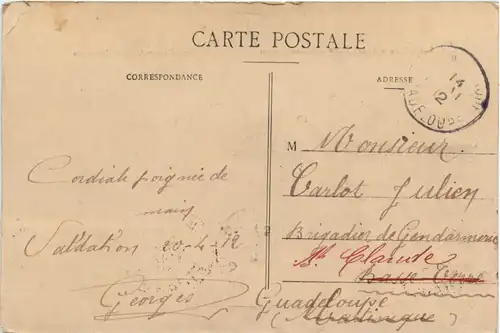 CARTE POSTALE
CORRESPONDANCE
ADRESSE
Cordiale poignée de
main
20-4-12
Georges
M Monsieur
Carlot Julien
Brigadier de Gendarmerie
Claude
Basse-Terre
Guadeloupe
(Martinique)
14
12